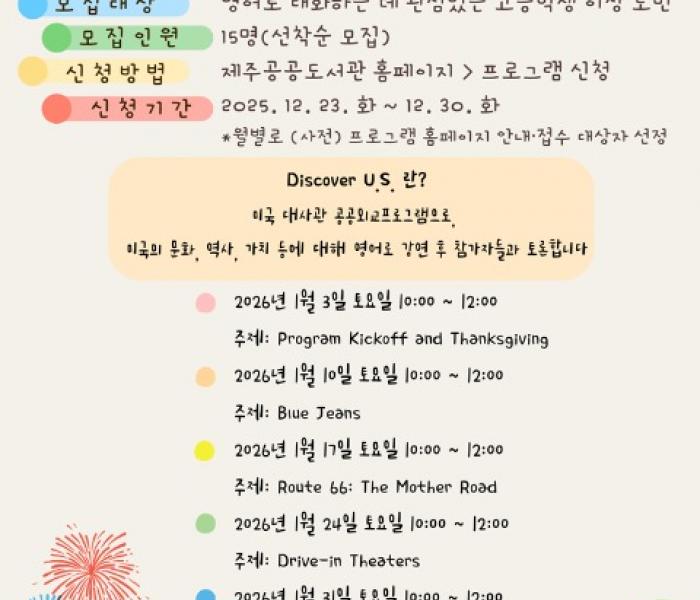 모집대상 영어로 대화하는 데 관심있는 고등학생 이상 도민
모집인원 15명(선착순 모집)
신청방법 제주공공도서관 홈페이지 > 프로그램 신청
신청기간 2025. 12. 23. 화 ~ 12. 30. 화
*월별로 (사전) 프로그램 홈페이지 안내·접수 대상자 선정
Discover U.S. 란?
미국 대사관 공공외교프로그램으로,
미국의 문화, 역사, 가치 등에 대해 영어로 강연 후 참가자들과 토론합니다
2026년 1월 3일 토요일 10:00 ~ 12:00
주제: Program Kickoff and Thanksgiving
2026년 1월 10일 토요일 10:00 ~ 12:00
주제: Blue Jeans
2026년 1월 17일 토요일 10:00 ~ 12:00
주제: Route 66: The Mother Road
2026년 1월 24일 토요일 10:00 ~ 12:00
주제: Drive-in Theaters
2026년 1월 31일 토요일 10:00 ~ 12:00